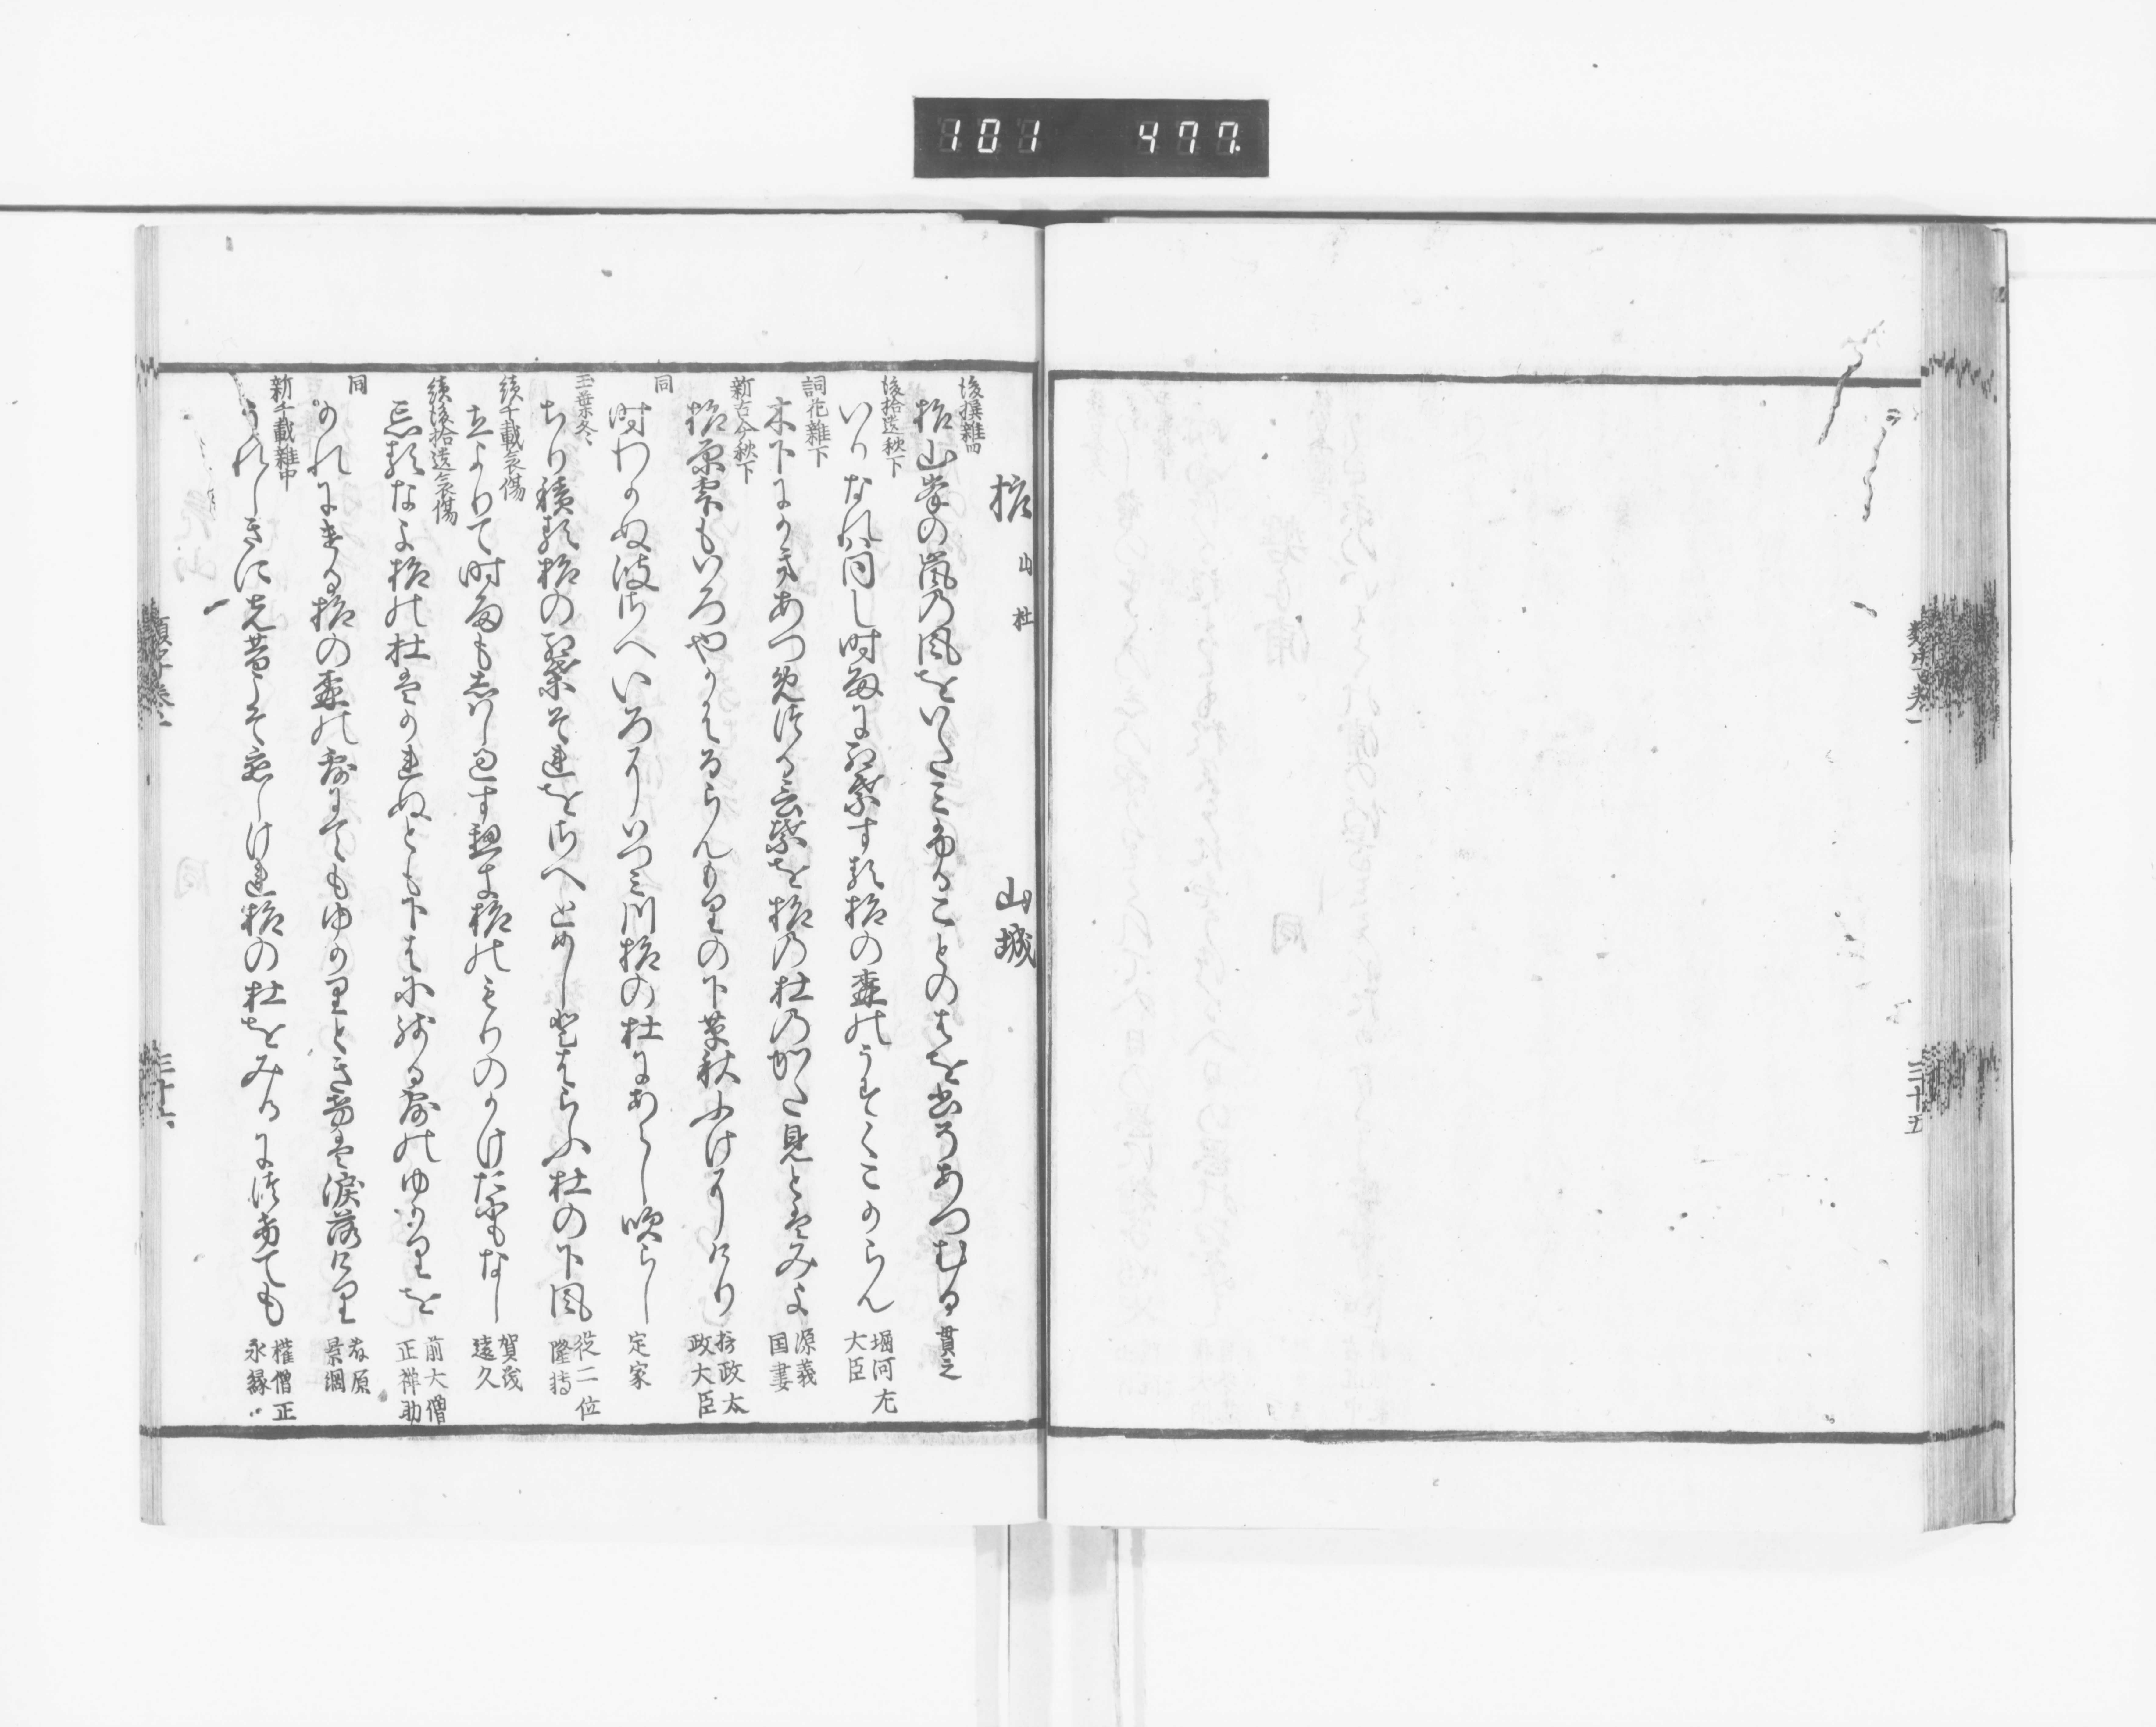 101 477.
類字巻一
三十五
柞 山 杜 山城
後撰雑四
柞山峯の嵐の風をいたみふることのはを書そあつむる 貫之
後拾遺秋下
いかなれは同し時雨に紅葉する柞の森のうすくこからん 堀河左大臣
詞花雑下
木下にかきあつめつる言葉を柞の杜のかたみとはみよ 源義国妻
新古今秋下
柞原雫もいろやかはるらんもりの下草秋ふけにけり 摂政太政大臣
同
時わかぬ波さへいろにいつみ川柞の杜にあらし吹らし 定家
玉葉冬
ちり積る柞の紅葉それをさへとめしとはらふ杜の下風 従二位隆博
続千載哀傷
立よりて時雨もしはし過す柞のもりのかけたにもなし 賀茂遠久
続後拾遺哀傷
忘るなよ柞の杜はかれぬとも下はに残る露のゆかりを 前大僧正禅助
同
かれにける柞の森の露にてもゆかりときは涙落けり 藤原景綱
新千載雑中
うれしきに先昔こそ恋しけれ柞の杜をみるにつけても 権僧正永縁
類字巻一
三十六